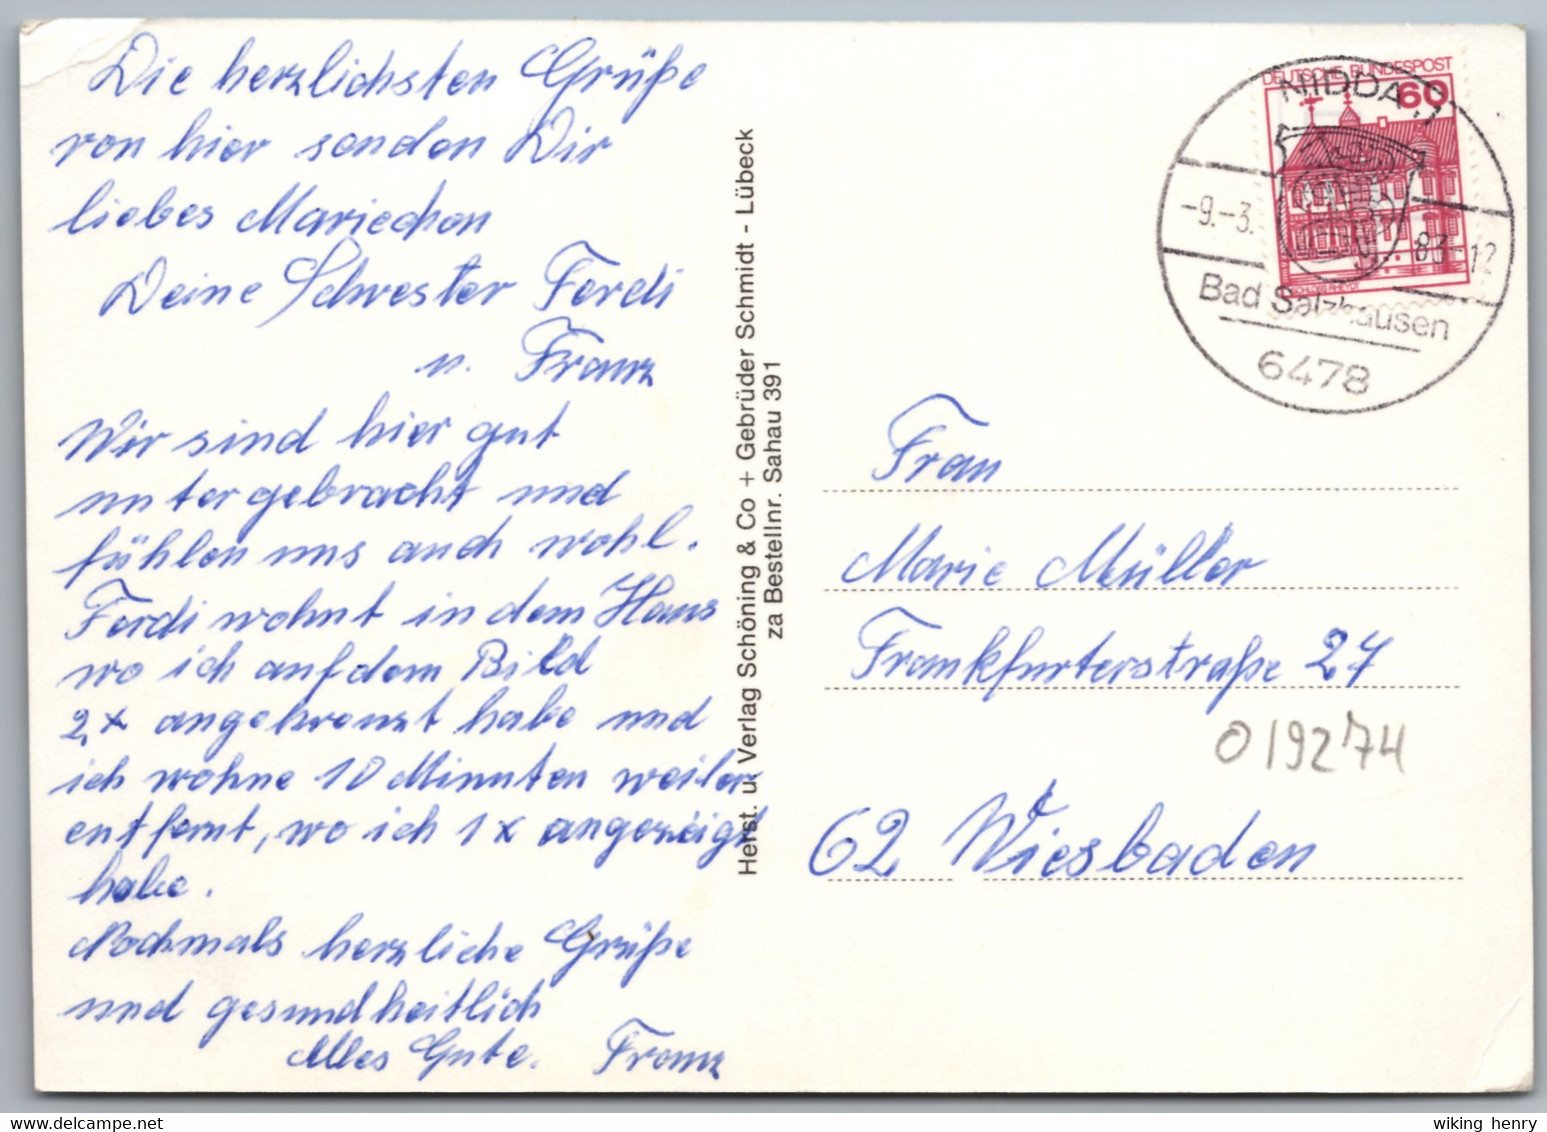 Die herzlichsten Grüße
von hier senden Dir
liebes Mariechen
Deine Schwester Ferdi
u. Franz
Wir sind hier gut
untergebracht und
fühlen uns auch wohl.
Ferdi wohnt in dem Haus
wo ich auf dem Bild
2x angekreuzt habe und
ich wohne 10 Minuten weiter
entfernt, wo ich 1x angezeigt
habe.
Nochmals herzliche Grüße
und gesundheitlich
Alles Gute. Franz
Herst. u. Verlag Schöning & Co + Gebrüder Schmidt - Lübeck
za Bestellnr. Sahau 391
DEUTSCHE BUNDESPOST
60
NIDDA 1
-9.-3. 83-12
Bad Salzhausen
6478
Frau
Marie Müller
Frankfurterstraße 27
019274
62 Wiesbaden
wiking henry